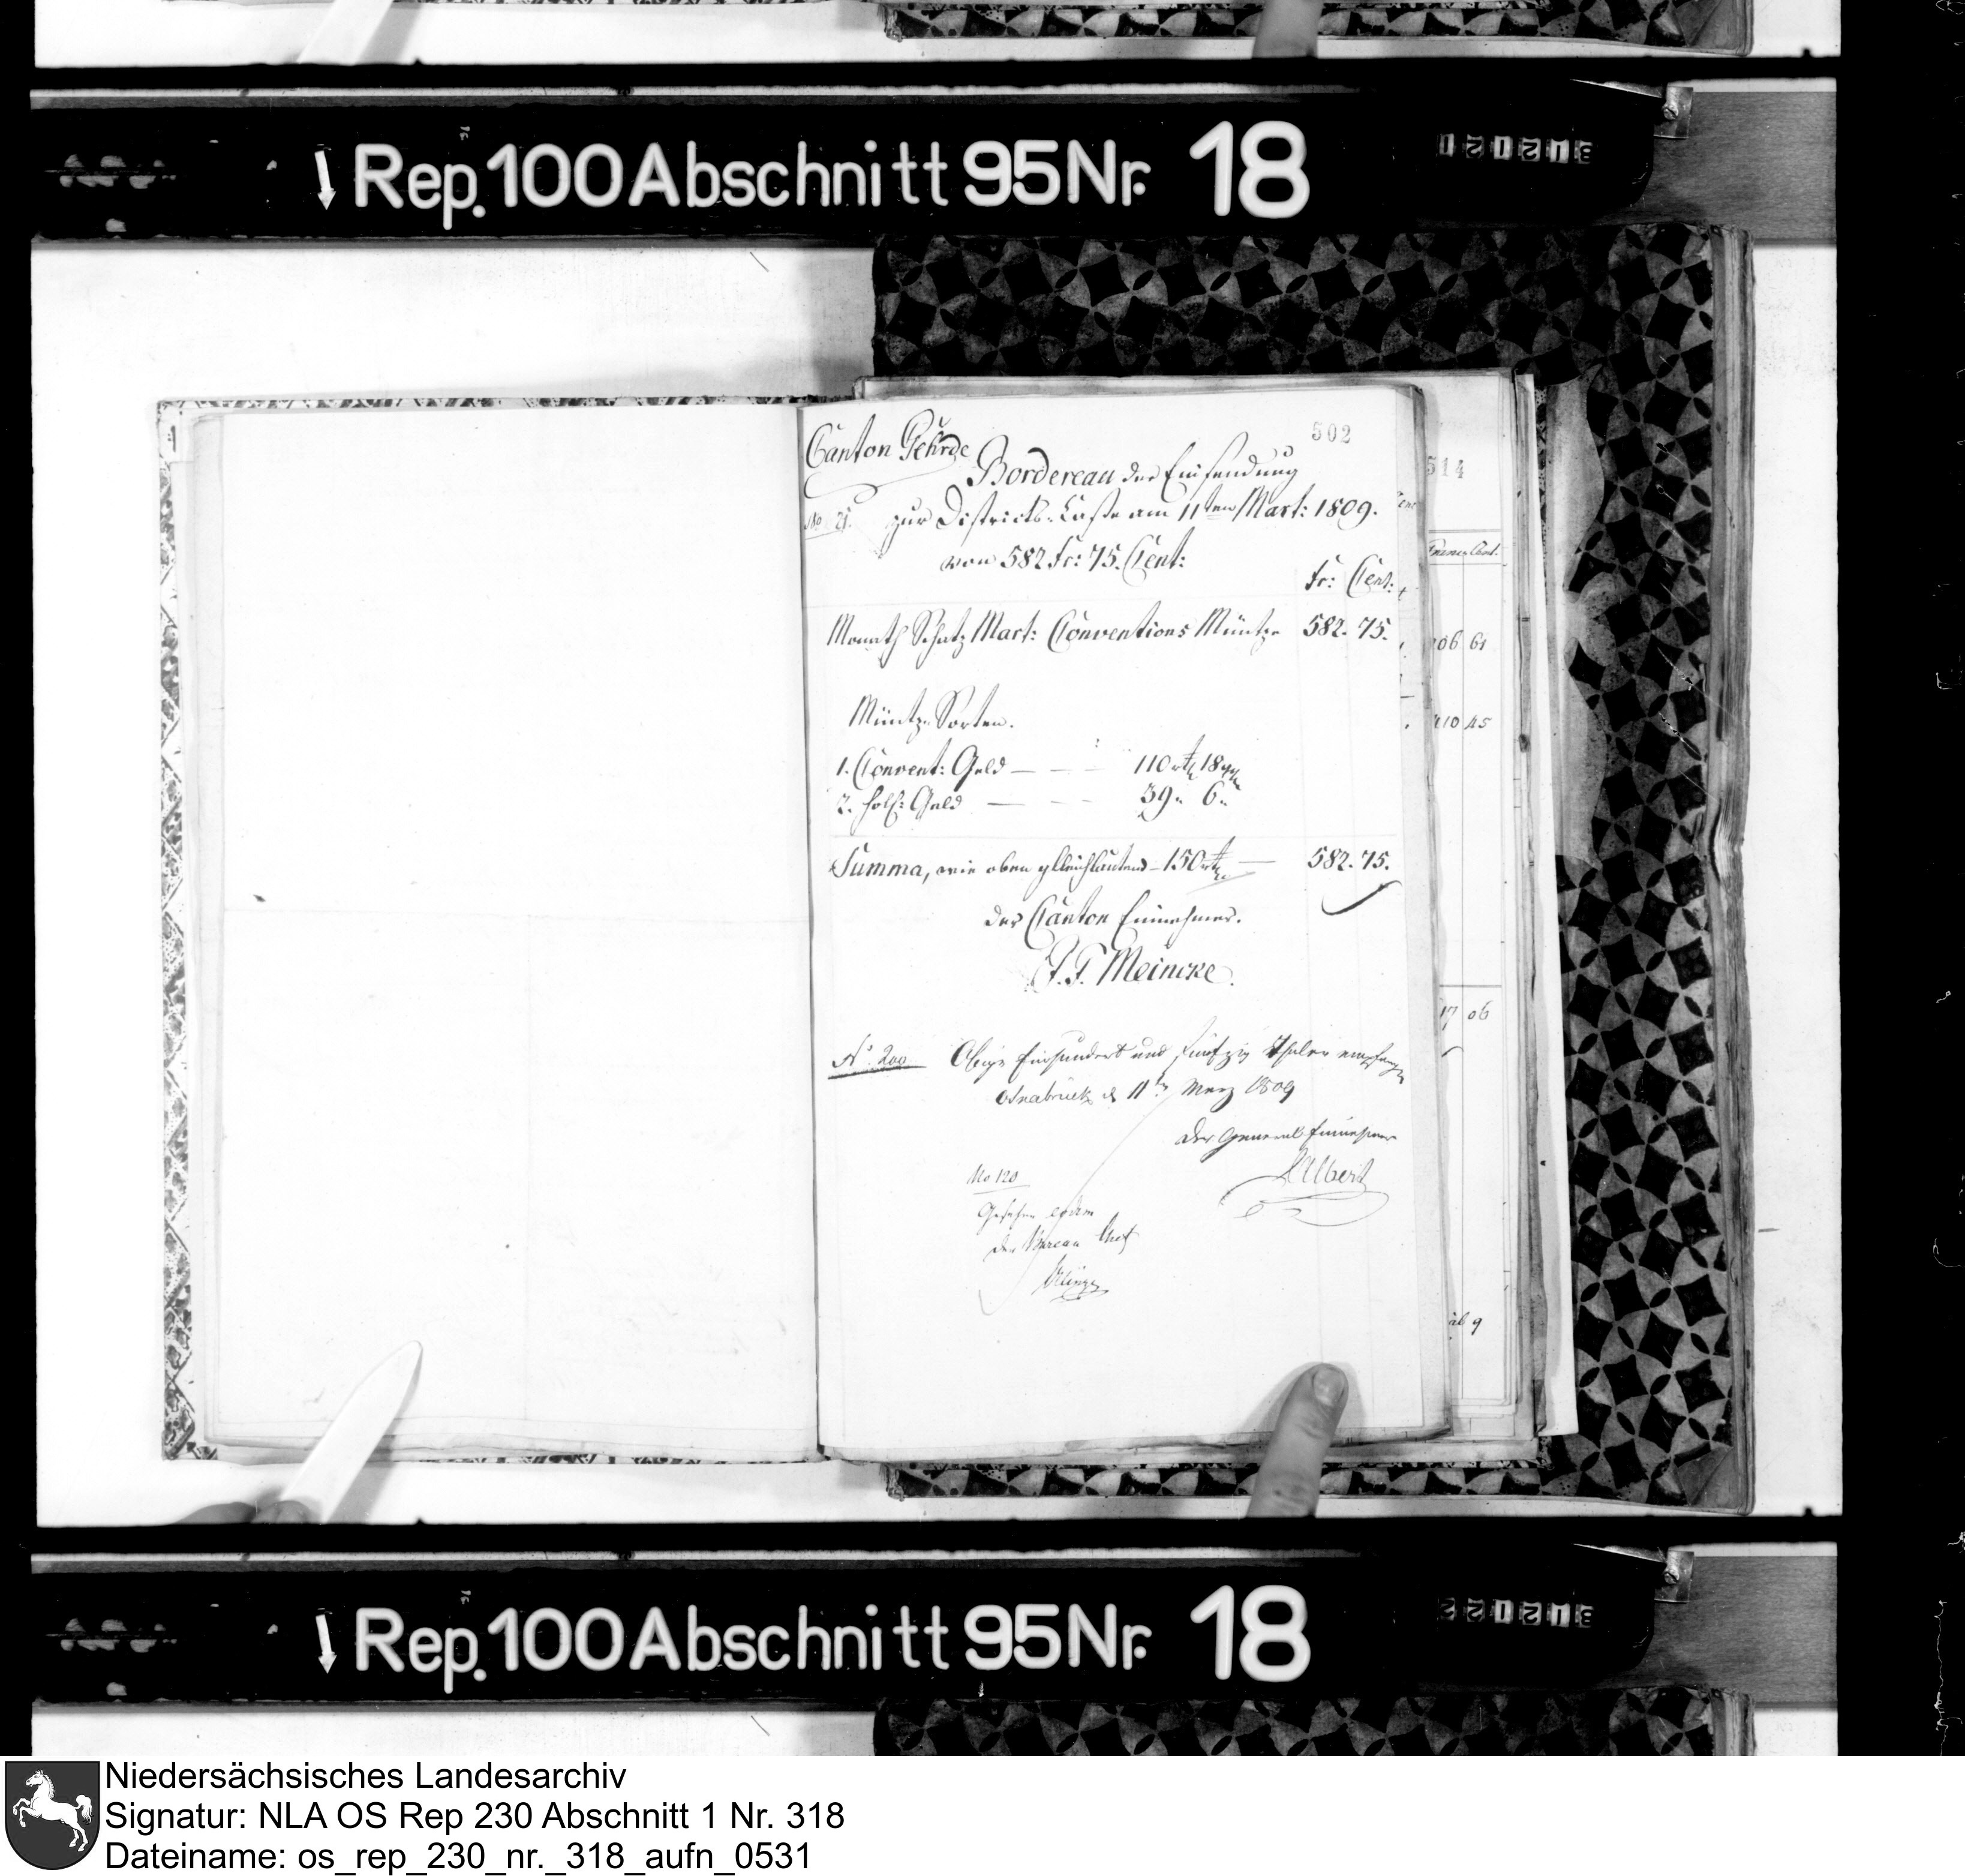 Rep. 100 Abschnitt 95 Nr. 18
312121
502
Canton Gehrde
Bordereau der Einsendung
No 21. zur Districts-Casse am 11ten Mart: 1809.
von 582 Fr: 75. Cent:
Fr: Cent:
Monath Schatz Mart: Conventions Müntze 582. 75.
Müntz-Sorten.
1. Convent: Geld — — — 110 rt 18
2. holl: Geld — — — 39 " 6 "
Summa, wie oben gleichlautend — 150 rt — 582. 75.
der Canton Einnehmer.
Meincke.
No. 200 Obige Einhundert und fünfzig Thaler empfangen
Osnabrück d 11tn Merz 1809
Der General Einnehmer
Albert
No 120
Gesehen eodem
der Bureau Chef
514
Francs Cent.
06 61
10 45
17 06
9
Rep. 100 Abschnitt 95 Nr. 18
312122
Niedersächsisches Landesarchiv
Signatur: NLA OS Rep 230 Abschnitt 1 Nr. 318
Dateiname: os_rep_230_nr._318_aufn_0531